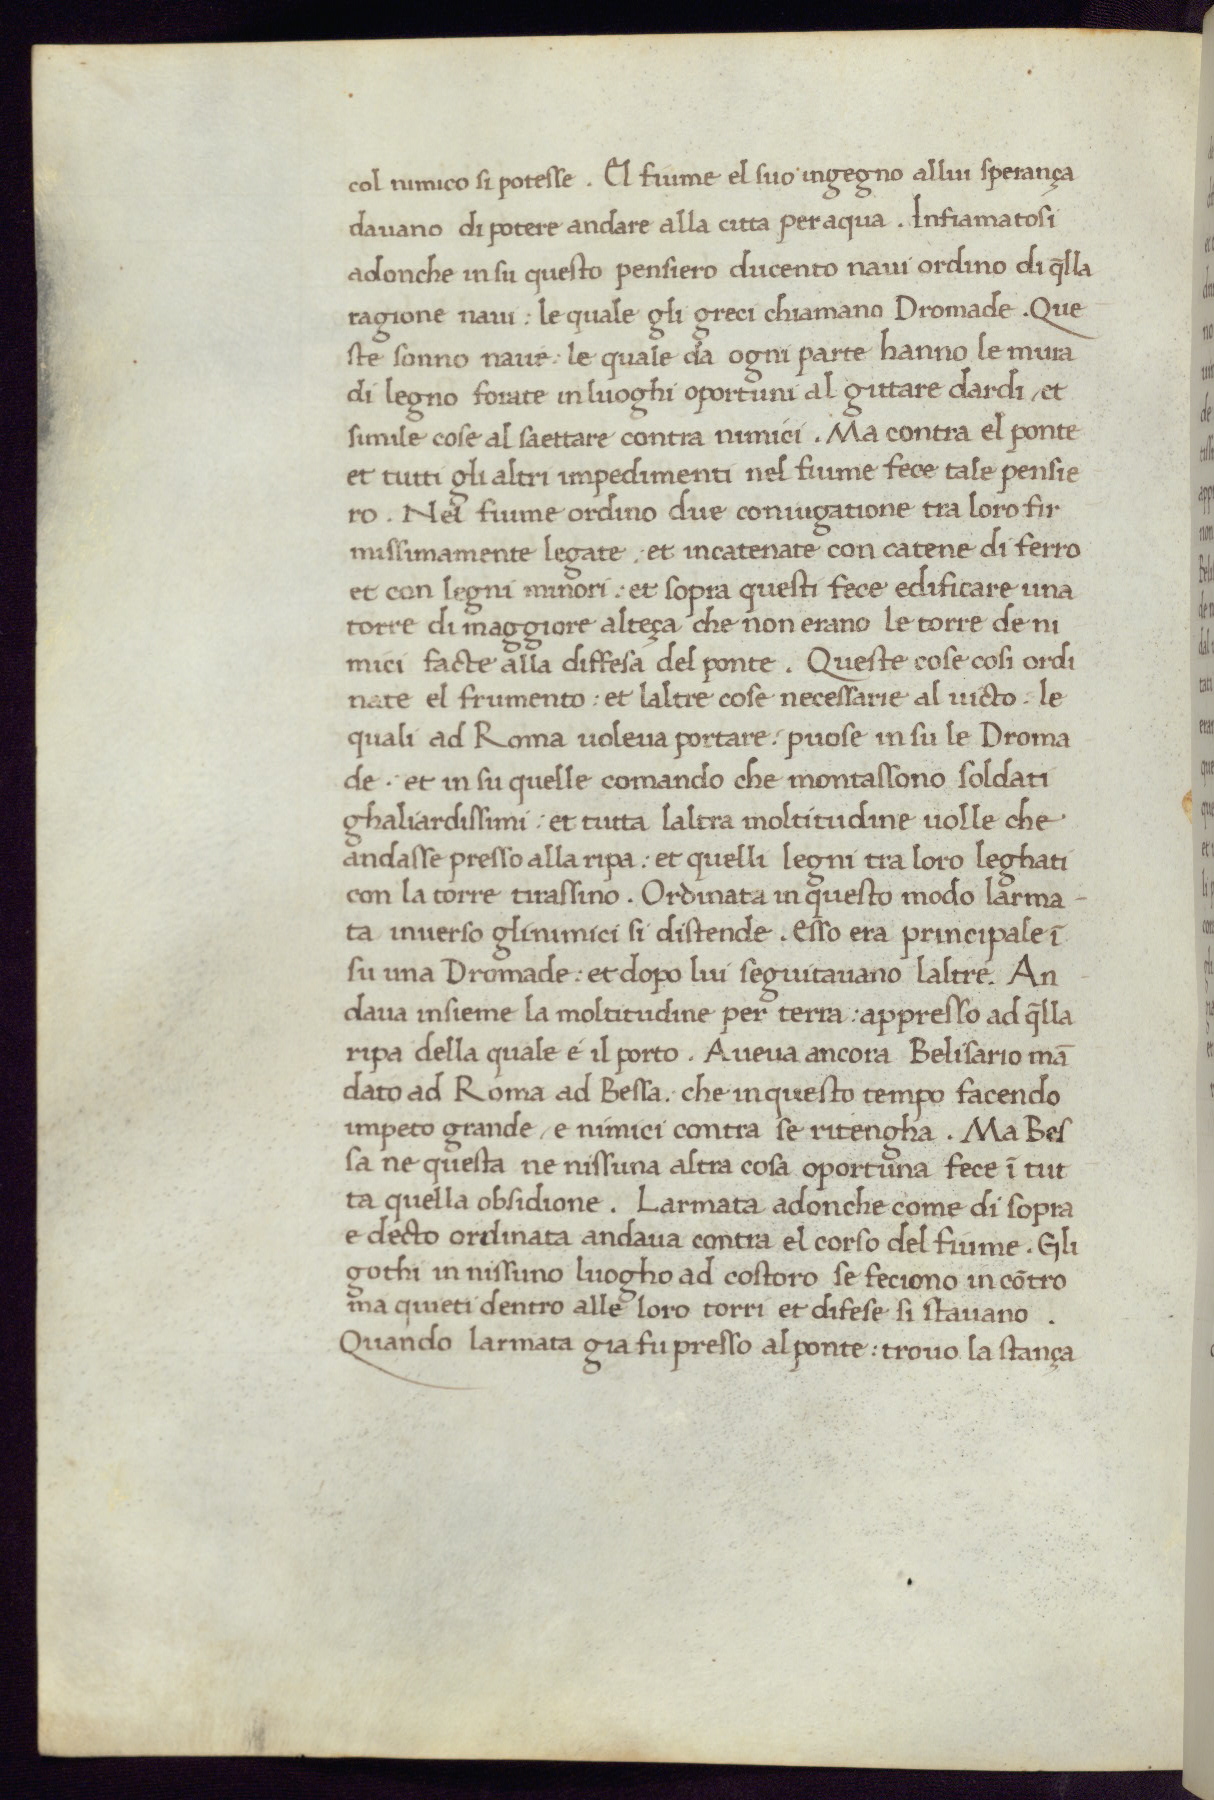 col nimico si potesse . El fiume el suo ingegno allui sperança
davano di potere andare alla citta per aqua . Infiamatosi
adonche in su questo pensiero ducento navi ordino di q̄lla
ragione navi : le quale gli greci chiamano Dromade . Que
ste sonno nave : le quale da ogni parte hanno le mura
di legno forate in luoghi oportuni al gittare dardi / et
simile cose al saettare contra nimici . Ma contra el ponte
et tutti gli altri impedimenti nel fiume fece tale pensie
ro . Nel fiume ordino due coniugatione tra loro fir
missimamente legate . et incatenate con catene di ferro
et con legni minori : et sopra questi fece edificare una
torre di maggiore alteça che non erano le torre de ni
mici facte alla diffesa del ponte . Queste cose cosi ordi
nate el frumento : et laltre cose necessarie al victo . le
quali ad Roma voleva portare : puose in su le Droma
de . et in su quelle comando che montassono soldati
ghaliardissimi : et tutta laltra moltitudine volle che
andasse presso alla ripa : et quelli legni tra loro leghati
con la torre tirassino . Ordinata in questo modo larma -
ta inverso gli nimici si distende . Esso era principale ī
su una Dromade : et dopo lui seguitavano laltre . An
dava insieme la moltitudine per terra : appresso ad q̄lla
ripa della quale é il porto . Aveva ancora Belisario mā
dato ad Roma ad Bessa . che in questo tempo facendo
impeto grande / e nimici contra se ritengha . Ma Bes
sa ne questa ne nissuna altra cosa oportuna fece ī tut
ta quella obsidione . Larmata adonche come di sopra
e decto ordinata andava contra el corso del fiume . Gli
gothi in nissuno luogho ad costoro se feciono in cōtro
ma quieti dentro alle loro torri et difese si stavano .
Quando larmata gia fu presso al ponte : trovo la stança